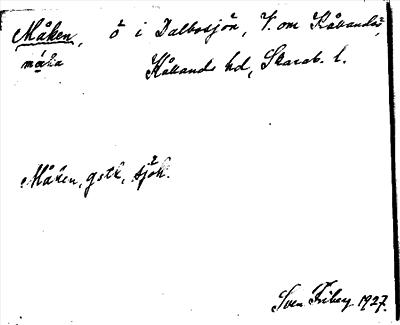 Måken, ö i Dalbosjön, V. om Kållandsö,
måka Kållands hd, Skarab. l.
Måken, gstk, sjök.
Sven Friberg 1927.